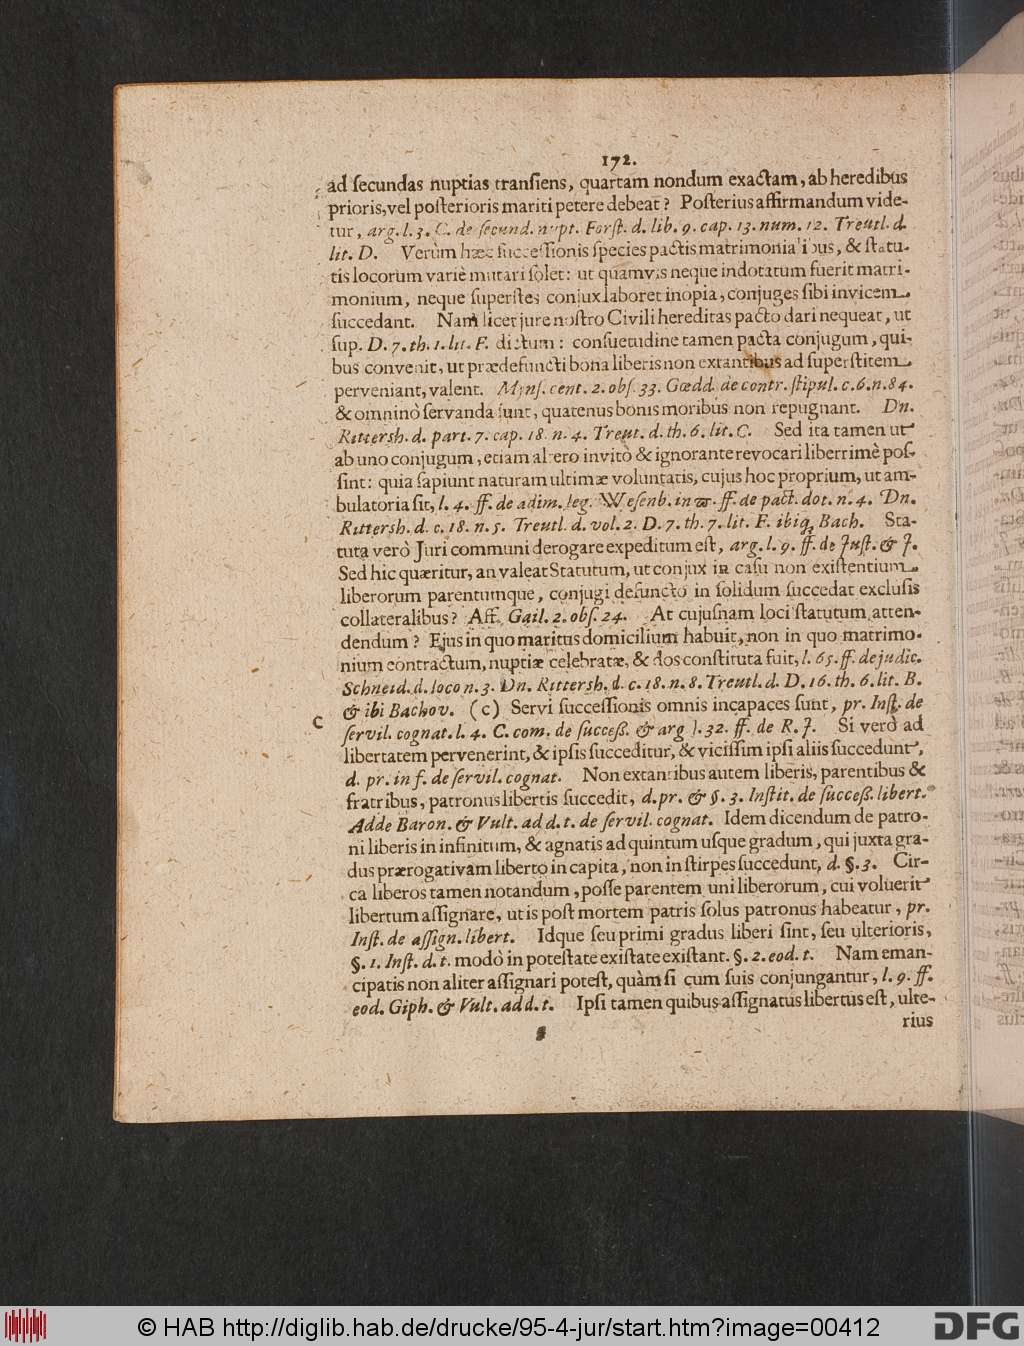 172.
ad ſecundas nuptias tranſiens, quartam nondum exactam, ab heredibus
prioris, vel poſterioris mariti petere debeat? Poſterius affirmandum vide-
tur, arg. l. 3. C. de ſecund. nupt. Forſt. d. lib. 9. cap. 13. num. 12. Treutl. d.
lit. D. Verùm hæc ſucceſſionis ſpecies pactis matrimonialibus, & ſtatu-
tis locorum variè mutari ſolet: ut quamvis neque indotatum fuerit matri-
monium, neque ſuperſtes conjux laboret inopia, conjuges ſibi invicem
ſuccedant. Nam licet jure noſtro Civili hereditas pacto dari nequeat, ut
ſup. D. 7. th. 1. lit. F. dictum: conſuetudine tamen pacta conjugum, qui-
bus convenit, ut prædefuncti bona liberis non extantibus ad ſuperſtitem
perveniant, valent. Mynſ. cent. 2. obſ. 33. Gœdd. de contr. ſtipul. c. 6. n. 84.
& omninò ſervanda ſunt, quatenus bonis moribus non repugnant. Dn.
Rittersh. d. part. 7. cap. 18. n. 4. Treut. d. th. 6. lit. C. Sed ita tamen ut
ab uno conjugum, etiam altero invitò & ignorante revocari liberrimè poſ-
ſint: quia ſapiunt naturam ultimæ voluntatis, cujus hoc proprium, ut am-
bulatoria ſit, l. 4. ff. de adim. leg. Weſenb. in ϖ. ff. de pact. dot. n. 4. Dn.
Rittersh. d. c. 18. n. 5. Treutl. d. vol. 2. D. 7. th. 7. lit. F. ibiq; Bach. Sta-
tuta verò Juri communi derogare expeditum eſt, arg. l. 9. ff. de Juſt. & J.
Sed hic quæritur, an valeat Statutum, ut conjux in caſu non exiſtentium
liberorum parentumque, conjugi defuncto in ſolidum ſuccedat excluſis
collateralibus? Aff. Gail. 2. obſ. 24. At cujuſnam loci ſtatutum atten-
dendum? Ejus in quo maritus domicilium habuit, non in quo matrimo-
nium contractum, nuptiæ celebratæ, & dos conſtituta fuit, l. 65. ff. de judic.
Schneid. d. loco n. 3. Dn. Rittersh. d. c. 18. n. 8. Treutl. d. D. 16. th. 6. lit. B.
& ibi Bachov. (c) Servi ſucceſſionis omnis incapaces ſunt, pr. Inſt. de
C
ſervil. cognat. l. 4. C. com. de ſucceſſ. & arg l. 32. ff. de R. J. Si verò ad
libertatem pervenerint, & ipſis ſucceditur, & viciſſim ipſi aliis ſuccedunt,
d. pr. in f. de ſervil. cognat. Non extantibus autem liberis, parentibus &
fratribus, patronus libertis ſuccedit, d. pr. & §. 3. Inſtit. de ſucceſſ. libert.
Adde Baron. & Vult. ad d. t. de ſervil. cognat. Idem dicendum de patro-
ni liberis in infinitum, & agnatis ad quintum uſque gradum, qui juxta gra-
dus prærogativam liberto in capita, non in ſtirpes ſuccedunt, d. §. 3. Cir-
ca liberos tamen notandum, poſſe parentem uni liberorum, cui voluerit
libertum aſſignare, ut is poſt mortem patris ſolus patronus habeatur, pr.
Inſt. de aſſign. libert. Idque ſeu primi gradus liberi ſint, ſeu ulterioris,
§. 1. Inſt. d. t. modò in poteſtate exiſtate exiſtant. §. 2. eod. t. Nam eman-
cipatis non aliter aſſignari poteſt, quàm ſi cum ſuis conjungantur, l. 9. ff.
eod. Giph. & Vult. ad d. t. Ipſi tamen quibus aſſignatus libertus eſt, ulte-
rius
© HAB http://diglib.hab.de/drucke/95-4-jur/start.htm?image=00412
DFG